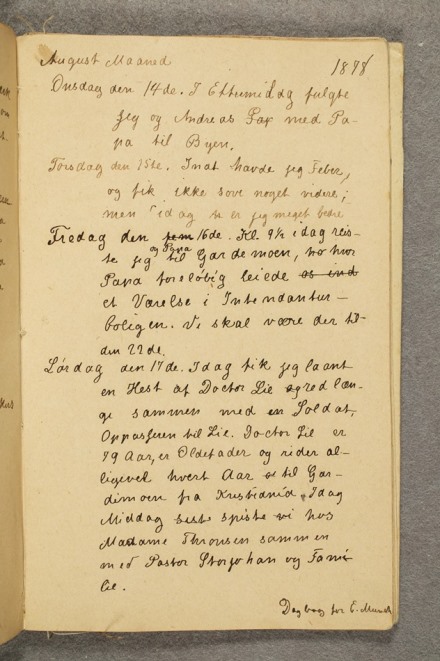 August Maaned 1878
Onsdag den 14de. I Ettermidag fulgte
jeg og Andreas Pax med Pa-
pa til Byen.
Torsdag den 15te. Inat havde jeg Feber,
og fik ikke sove noget videre;
men idag er jeg meget bedre
Fredag den fem 16de. Kl. 9½ idag reis-
te jeg og Papa til Gardemoen, hvor
Papa foreløbig leiede os ind
et Værelse i Intendantur-
boligen. Vi skal være der til
den 22de.
Lørdag den 17de. Idag fik jeg laant
en Hest af Doctor Lie og red læn-
ge sammen med en Soldat,
Oppasseren til Lie. Doctor Lie er
79 Aar, er Oldefader og rider al-
ligevel hvert Aar til Gar-
dimoen fra Kristiania. Idag
Middag spiste vi hos
Madame Thronsen sammen
med Pastor Storjohan og Fami-
lie.
Dagbog for E. Munch